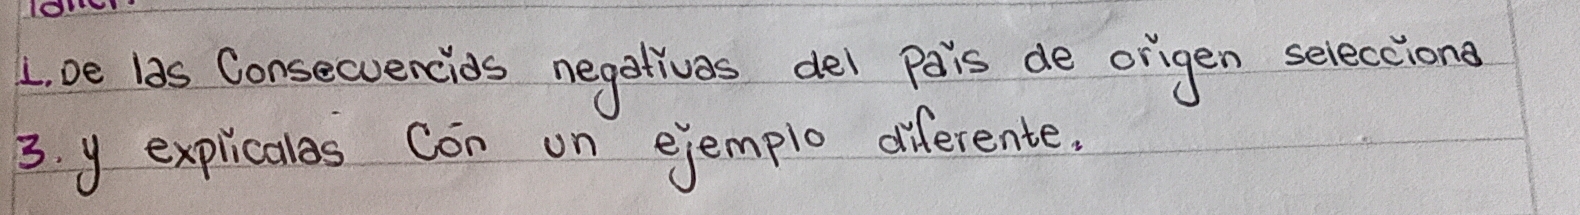 1. De las Consecuencias negativas del País de origen selecciona
3. y explicalas Con un ejemplo diferente.